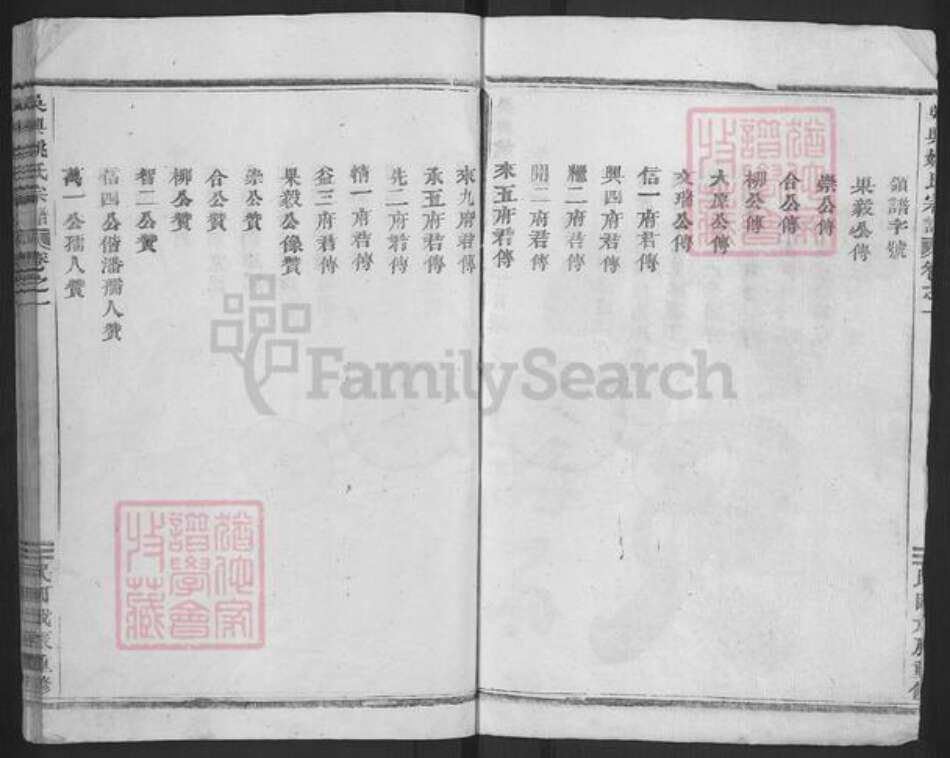 領譜字號
果毅公傳
崇公傳
合公傳
柳公傳
太原公傳
文瑞公傳
信一府君傳
興四府君傳
禮二府君傳
開二府君傳
來五府君傳
來九府君傳
承五府君傳
先二府君傳
精一府君傳
益三府君傳
果毅公像贊
崇公贊
合公贊
柳公贊
智二公贊
信四公偕潘孺人贊
萬一公孺人贊
吳興姚氏宗譜 卷之一
FamilySearch
譜學會
收藏